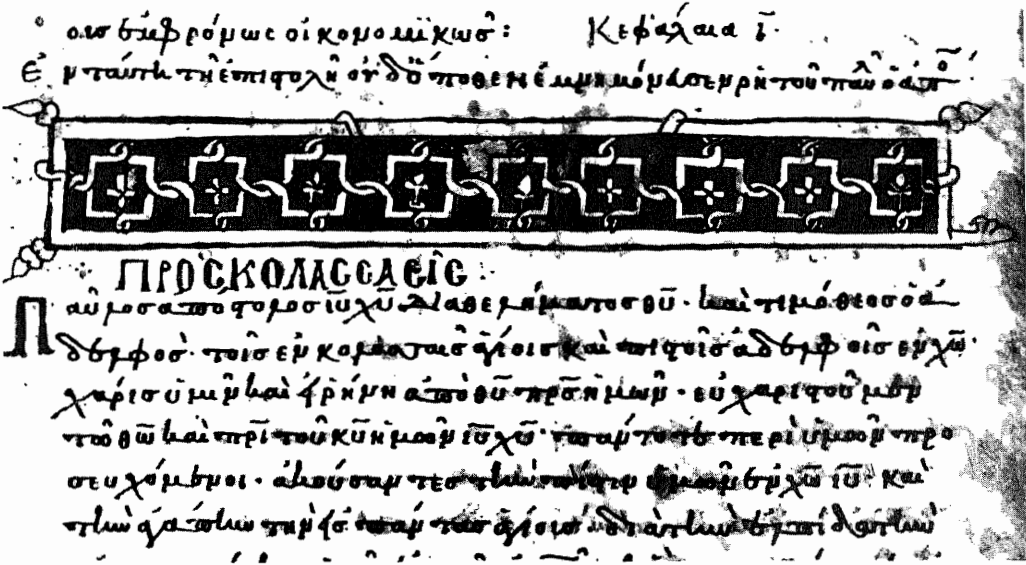 οισ ἐμφρόνως οἰκονομικῶσ: Κεφάλαια ι̅·
Ἐν ταύτη τῆ ἐπιστολῆ ἐμνημόνευσεν ρητοῦ
ΠΡῸΣ ΚΟΛΑΣΣΑΕΙ͂Σ:
Παῦλοσ ἀπόστολοσ ιυ̅ χυ̅ διὰ θελήματοσ θυ̅· καὶ τιμόθεοσ ὁ ἀ
δελφόσ· τοῖσ ἐν κολασσαῖσ ἁγίοισ καὶ πιστοῖσ ἀδελφοῖσ ἐν χω̅·
χάρισ ὑμῖν καὶ εἰρήνη ἀπὸ θυ̅ πρ̅σ ἡμῶν· εὐχαριστοῦμεν
τῶ θω̅ καὶ πρ̅ι τοῦ κυ̅ ἡμῶν ιυ̅ χυ̅· πάντοτε περὶ ὑμῶν προ
σευχόμενοι· ἀκούσαντεσ τὴν πίστιν ὑμῶν ἐν χω̅ ιυ̅· καὶ
τὴν ἀγάπην τὴν εἰσ πάντασ ἁγίουσ· διὰ τὴν ἐλπίδα τὴν